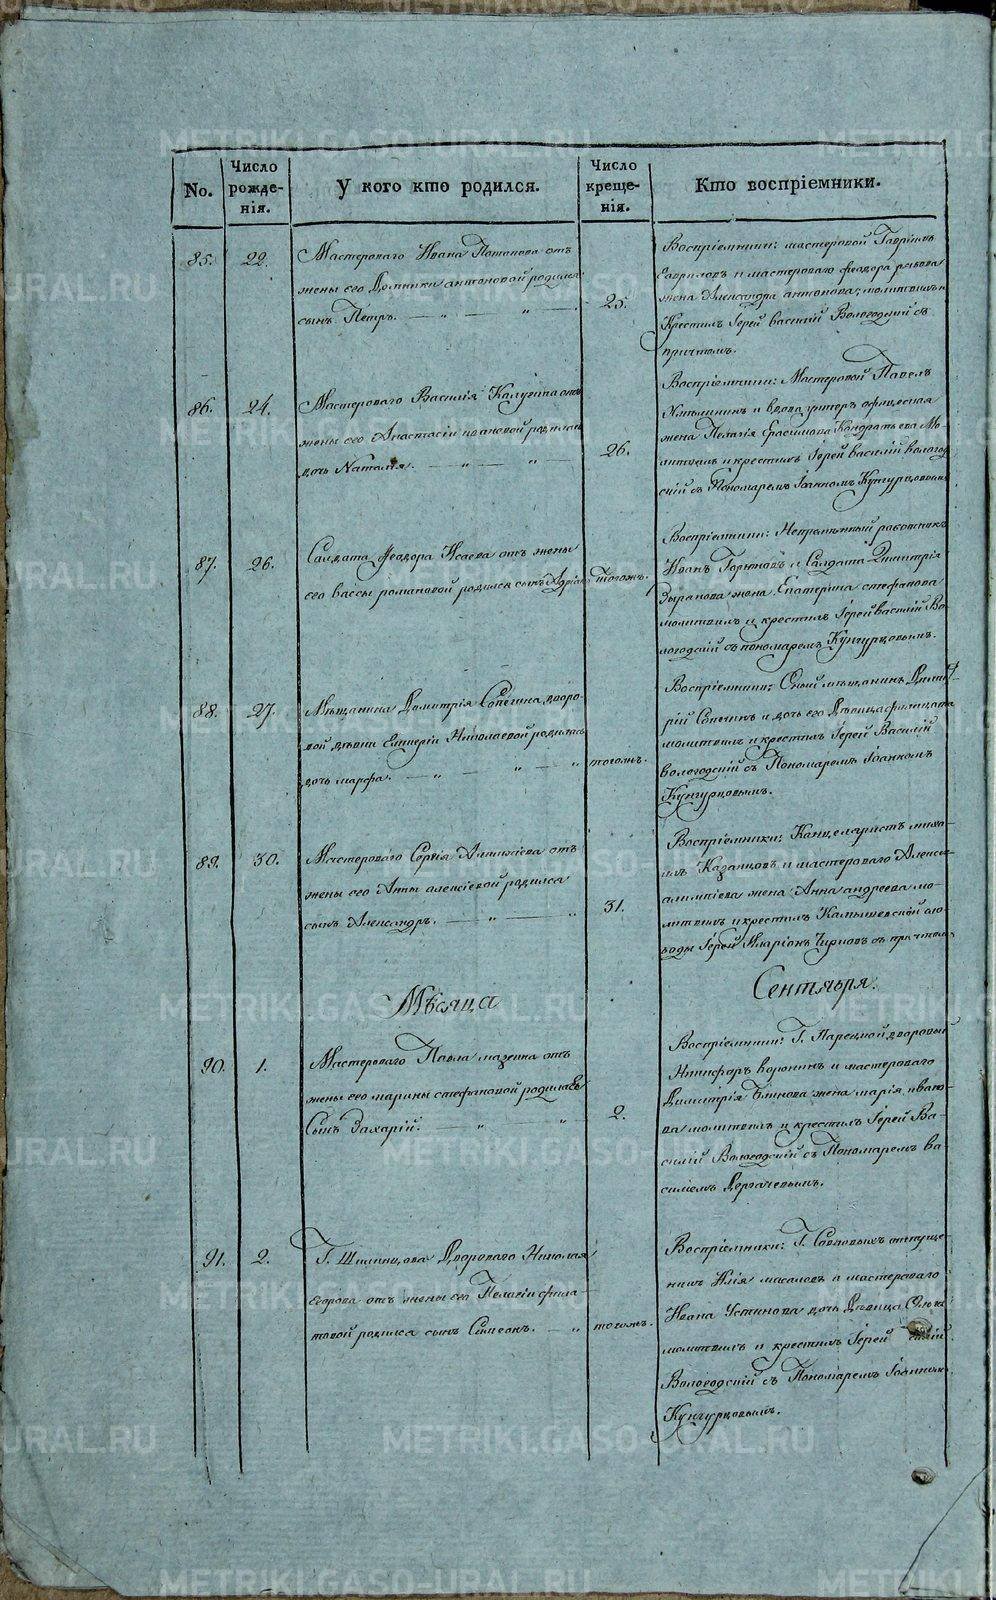 METRIKI.GASO-URAL.RU
No.
Число рожденія.
У кого кто родился.
Число крещенія.
Кто воспріемники.
85.
22.
Мастероваго Ивана Потапова отъ
жены его Домники антоновой родился
сынъ Петръ.
25.
Воспріемники: мастеровой Гаврiилъ
Гавриловъ и мастероваго феодора
жена Александра антонова; молитвилъ и
Крестилъ Іерей василій Вологодскій съ
причтомъ.
86.
24.
Мастероваго Василія Калугина отъ
жены его Анастасіи ивановой родилась
дочь Наталія.
26.
Воспріемники: Мастеровой Павелъ
и вдова унтеръ офицерская
жена Пелагія Герасимова Кондратьева Мо-
литвилъ и крестилъ Іерей василій вологод-
скій съ Пономаремъ Іоанномъ Кунгурцовымъ
87.
26.
Салдата Феодора Исаева отъ жены
его вассы романовой родился сынъ Адріанъ
тогожъ.
Воспріемники: Непремѣнный работникъ
Иванъ Горюновъ и Салдата Димитрія
Зырянова жена Екатерина стефанова
молитвилъ и крестилъ Іерей Василій Во-
логодскій съ пономаремъ Кунгурцовымъ.
88.
27.
Мѣщанина Димитрія Сопегина дворо-
вой дѣвки Николаевой родилась
дочь марфа.
тогожъ.
Воспріемники: Оный мѣщанинъ Димит-
рій и дочь его Дѣвица филицата
молитвилъ и крестилъ Іерей Василій
вологодскій съ Пономаремъ Іоанномъ
Кунгурцовымъ.
89.
30.
Мастероваго Сергія отъ
жены его Анны алексіевой родился
сынъ Александръ.
31.
Воспріемники: Канцеляристъ миха-
илъ Казанцовъ и мастероваго Алексѣя
жена Анна андреева мо-
литвилъ и крестилъ Камышевской сло-
боды Іерей Иларіонъ съ причтомъ
Мѣсяца
Сентября.
90.
1.
Мастероваго Павла мазеина отъ
жены его марины стефановой родился
Сынъ Захарій.
2.
Воспріемники: Г. дворовый
Никифоръ воронинъ и мастероваго
Димитрія Блинова жена марія ивано-
ва молитвилъ и крестилъ Іерей Ва-
силій Вологодскій съ Пономаремъ ва-
силіемъ Дергачевымъ.
91.
2.
Г. Ширинцова Двороваго Николая
Егорова отъ жены его Пелагіи фила-
товой родился сынъ Симеонъ.
тогожъ.
Воспріемники: Г.
Илія масаловъ и мастероваго
Ивана Устинова дочь Дѣвица
молитвилъ и крестилъ Іерей
Вологодскій съ Пономаремъ Іоанномъ
Кунгурцовымъ.